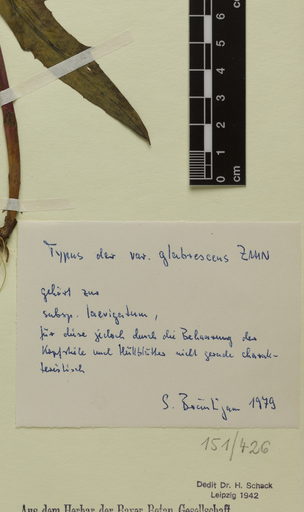 6
5
4
3
2
1
0
cm
Typus der var. glabrescens ZAHN
gehört zur
subsp. laevigatum,
für diese jedoch durch die Behaarung der
Kopfstiele und Hüllblätter nicht gerade charak-
teristisch
S. Bräutigam 1979
151/426
Dedit Dr. H. Schack
Leipzig 1942
Aus dem Herbar der Bayer. Botan. Gesellschaft